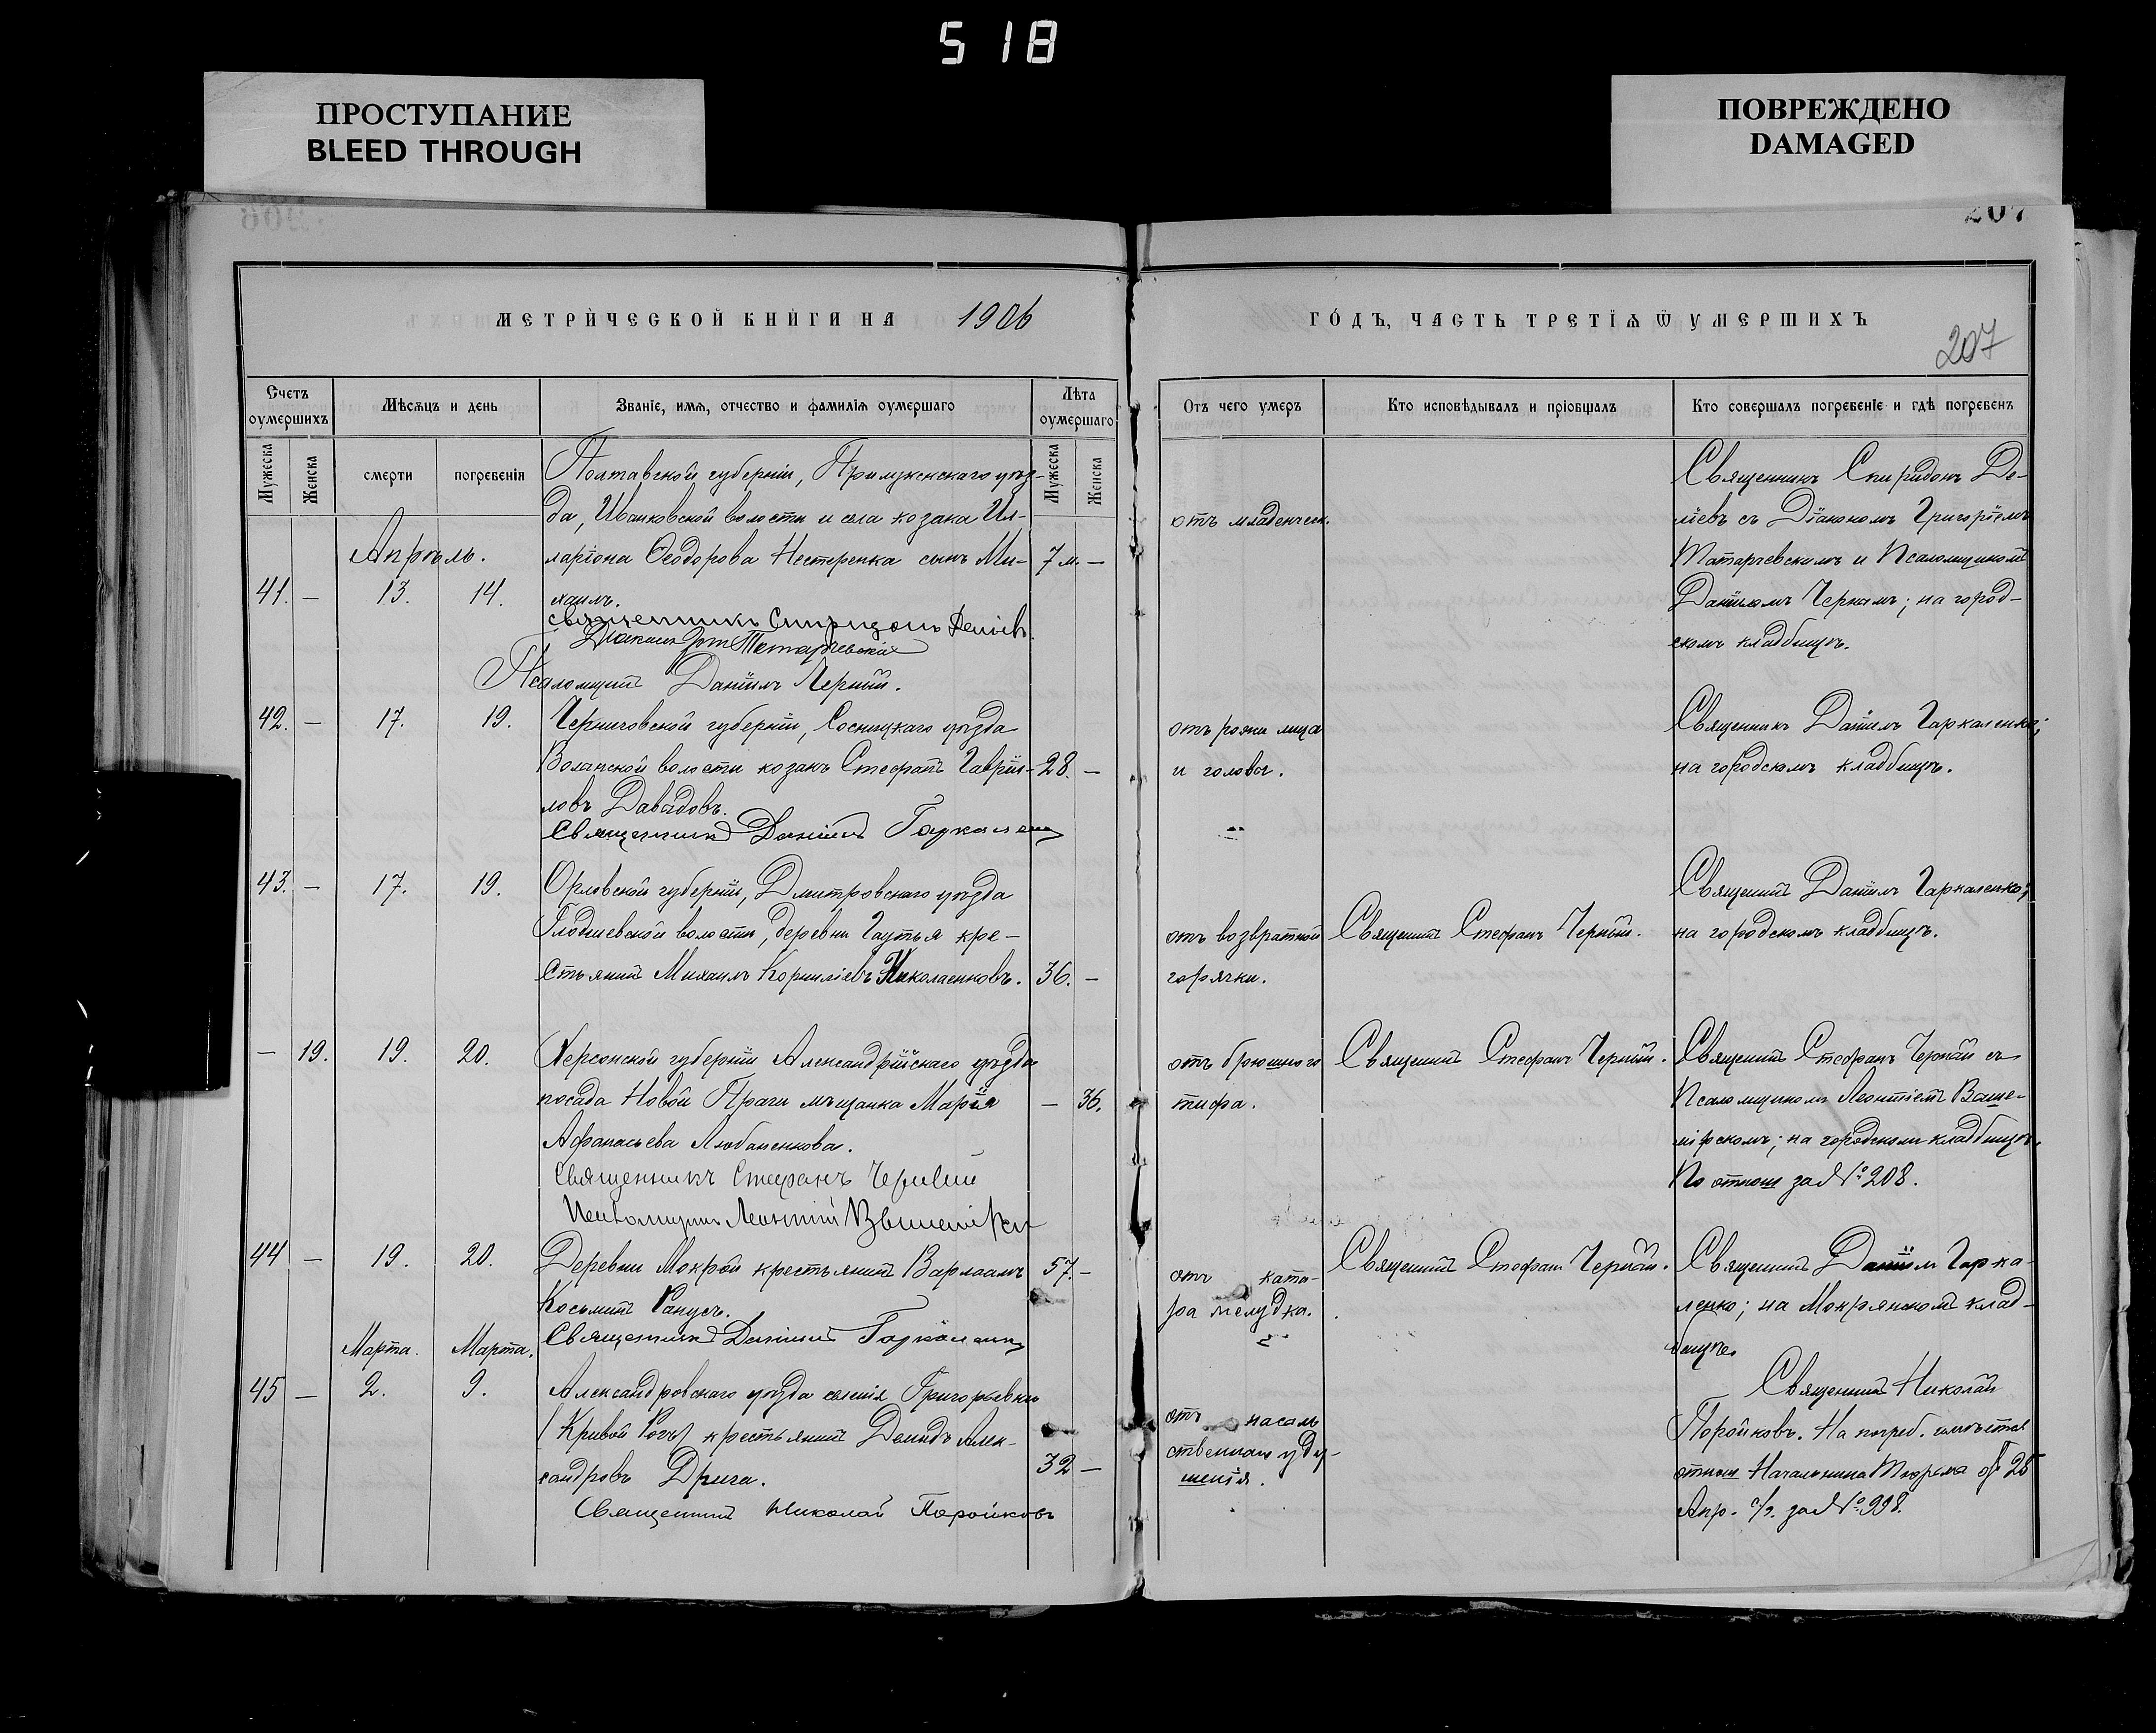 518
ПРОСТУПАНИЕ
BLEED THROUGH
ПОВРЕЖДЕНО
DAMAGED
207
МЕТРИЧЕСКОЙ КНИГИ НА 1906
ГОДЪ, ЧАСТЬ ТРЕТІѦ Ѿ УМЕРШИХЪ
207
Счетъ оумершихъ
Мѣсѧцъ и день
Званіе, имѧ, отчество и фамиліѧ оумершаго
Лѣта оумершаго
Отъ чего умеръ
Кто исповѣдывалъ и пріобщалъ
Кто совершалъ погребеніе и гдѣ погребенъ
Мужеска
Женска
смерти
погребеніѧ
Мужеска
Женска
Апрѣль.
41. — 13. 14.
Полтавской губерніи, Прилукскаго уѣз-
да, Иванковской волости и села козака Ил-
ларіона Ѳеодорова Нестеренка сынъ Ми- 7 м. —
хаилъ.
Священникъ Спиридонъ
Псаломщикъ Даніилъ Черный.
отъ младенческ.
Священникъ Спиридонъ
съ Діакономъ Григоріемъ
и Псаломщикомъ
Даніиломъ Чернымъ; на город-
скомъ кладбищѣ.
42. — 17. 19.
Черниговской губерніи, Сосницкаго уѣзда
волости козакъ Стефанъ Гавріи- 28. —
ловъ Давидовъ.
Священникъ Даніилъ Гаркаленко
отъ рожи лица
и головы.
Священникъ Даніилъ Гаркаленко;
на городскомъ кладбищѣ.
43. — 17. 19.
Орловской губерніи, Дмитровскаго уѣзда
волости, деревни кре-
стьянинъ Михаилъ Корниліевъ Николаенковъ. 36. —
отъ возвратной
горячки.
Священникъ Стефанъ Черный.
Священникъ Даніилъ Гаркаленко;
на городскомъ кладбищѣ.
— 19. 19. 20.
Херсонской губерніи Александрійскаго уѣзда
посада Новой Праги мѣщанка Марія — 36.
Афанасьева Любаненкова.
Священникъ Стефанъ Черный
Псаломщикъ Леонтій
отъ брюшного
тифа.
Священникъ Стефанъ Черный.
Священникъ Стефанъ Черный съ
Псаломщикомъ Леонтіемъ
на городскомъ кладбищѣ.
По отнош за № 208.
44 — 19. 20.
Деревни Мокрой крестьянинъ Варлаамъ 57. —
Косьминъ
Священникъ Даніилъ Гаркаленко
отъ ката-
ра желудка.
Священникъ Стефанъ Черный.
Священникъ Даніилъ Гарка-
ленко; на Мокрянскомъ клад-
бищѣ.
Марта. Марта.
45 — 2. 9.
Александровскаго уѣзда селенія Григорьевки
(Кривой Рогъ) крестьянинъ Демидъ Алек-
сандровъ Дрига. 32 —
Священникъ Николай Поройковъ
отъ насиль
ственнаго уду-
шенія.
Священникъ Николай
Поройковъ. На погреб. имѣется
отнош Начальника Тюрьма отъ 25
Апр. с/г. за № 998.